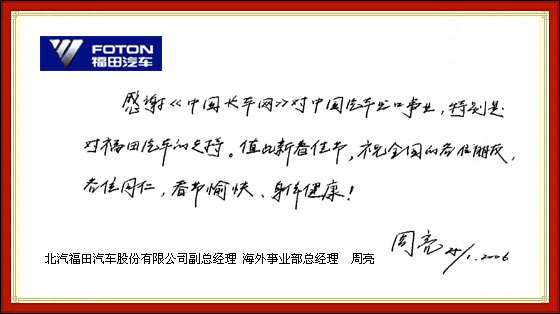 FOTON
福田汽车
感谢《中国卡车网》对中国汽车出口事业,特别是
对福田汽车的支持。值此新春佳节,祝全国的各位朋友,
各位同仁,春节愉快、身体健康!
周亮 25/1.2006
北汽福田汽车股份有限公司副总经理 海外事业部总经理 周亮